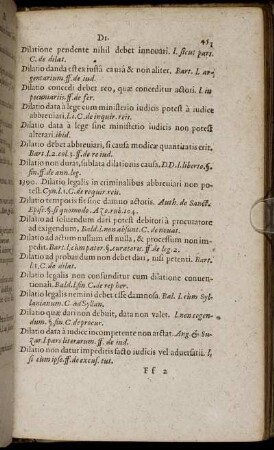 DI.
451
Dilatione pendente nihil debet innouari. l. sicut part.
C. de dilat.
Dilatio danda est ex iusta causa & non aliter. Bart. l. ar-
gentarium. ff. de iud.
Dilatio concedi debet reo, quæ conceditur actori. l. in
pecuniariis. ff. de fer.
Dilatio data à lege cum ministerio iudicis potest à iudice
abbreuiari. l. 1. C. de inquir. reis.
Dilatio data à lege sine ministerio iudicis non potest
alterari. ibid.
Dilatio debet abbreuiari, si causæ modicæ quantitatis erit.
Bart. l. 2. col. 3. ff. de re iud.
Dilatio non durat, sublata dilationis causa. DD. l. liberto. §.
fin. ff. de ann. leg.
1390. Dilatio legalis in criminalibus abbreuiari non po-
test. Cyn. l. 1. C. de requir. reis.
Dilatio temporis fit sine damno actoris. Auth. de Sanct.
Episc. §. si quomodo. Azo. rub. 104.
Dilatio ad soluendum dari potest debitori à procuratore
ad exigendum. Bald. l. non absunt. C. de nouat.
Dilatio ad actum nullum est nulla, & processum non im-
pedit. Bart. l. cum pater. §. curatores. ff. de leg. 2.
Dilatio ad probandum non debet dati, nisi petenti. Bart.
l. 1. C. de dilat.
Dilatio legalis non confunditur cum dilatione conuen-
tionali. Bald. l. fin. C. de rep. her.
Dilatio legalis nemini debet esse damnosa. Bal. l. cum Syl-
lanianum. C. ad Syllan.
Dilatio quæ dari non debuit, data non valet. l. non cogen-
dum. §. fin. C. de procur.
Dilatio data à iudice incompetente non arctat. Ang. & Su-
zar. l. pars literarum. ff. de iud.
Dilatio non datur impeditis facto iudicis vel aduersarii. l.
si cum ipse. ff. de excus. tut.
Ff 2